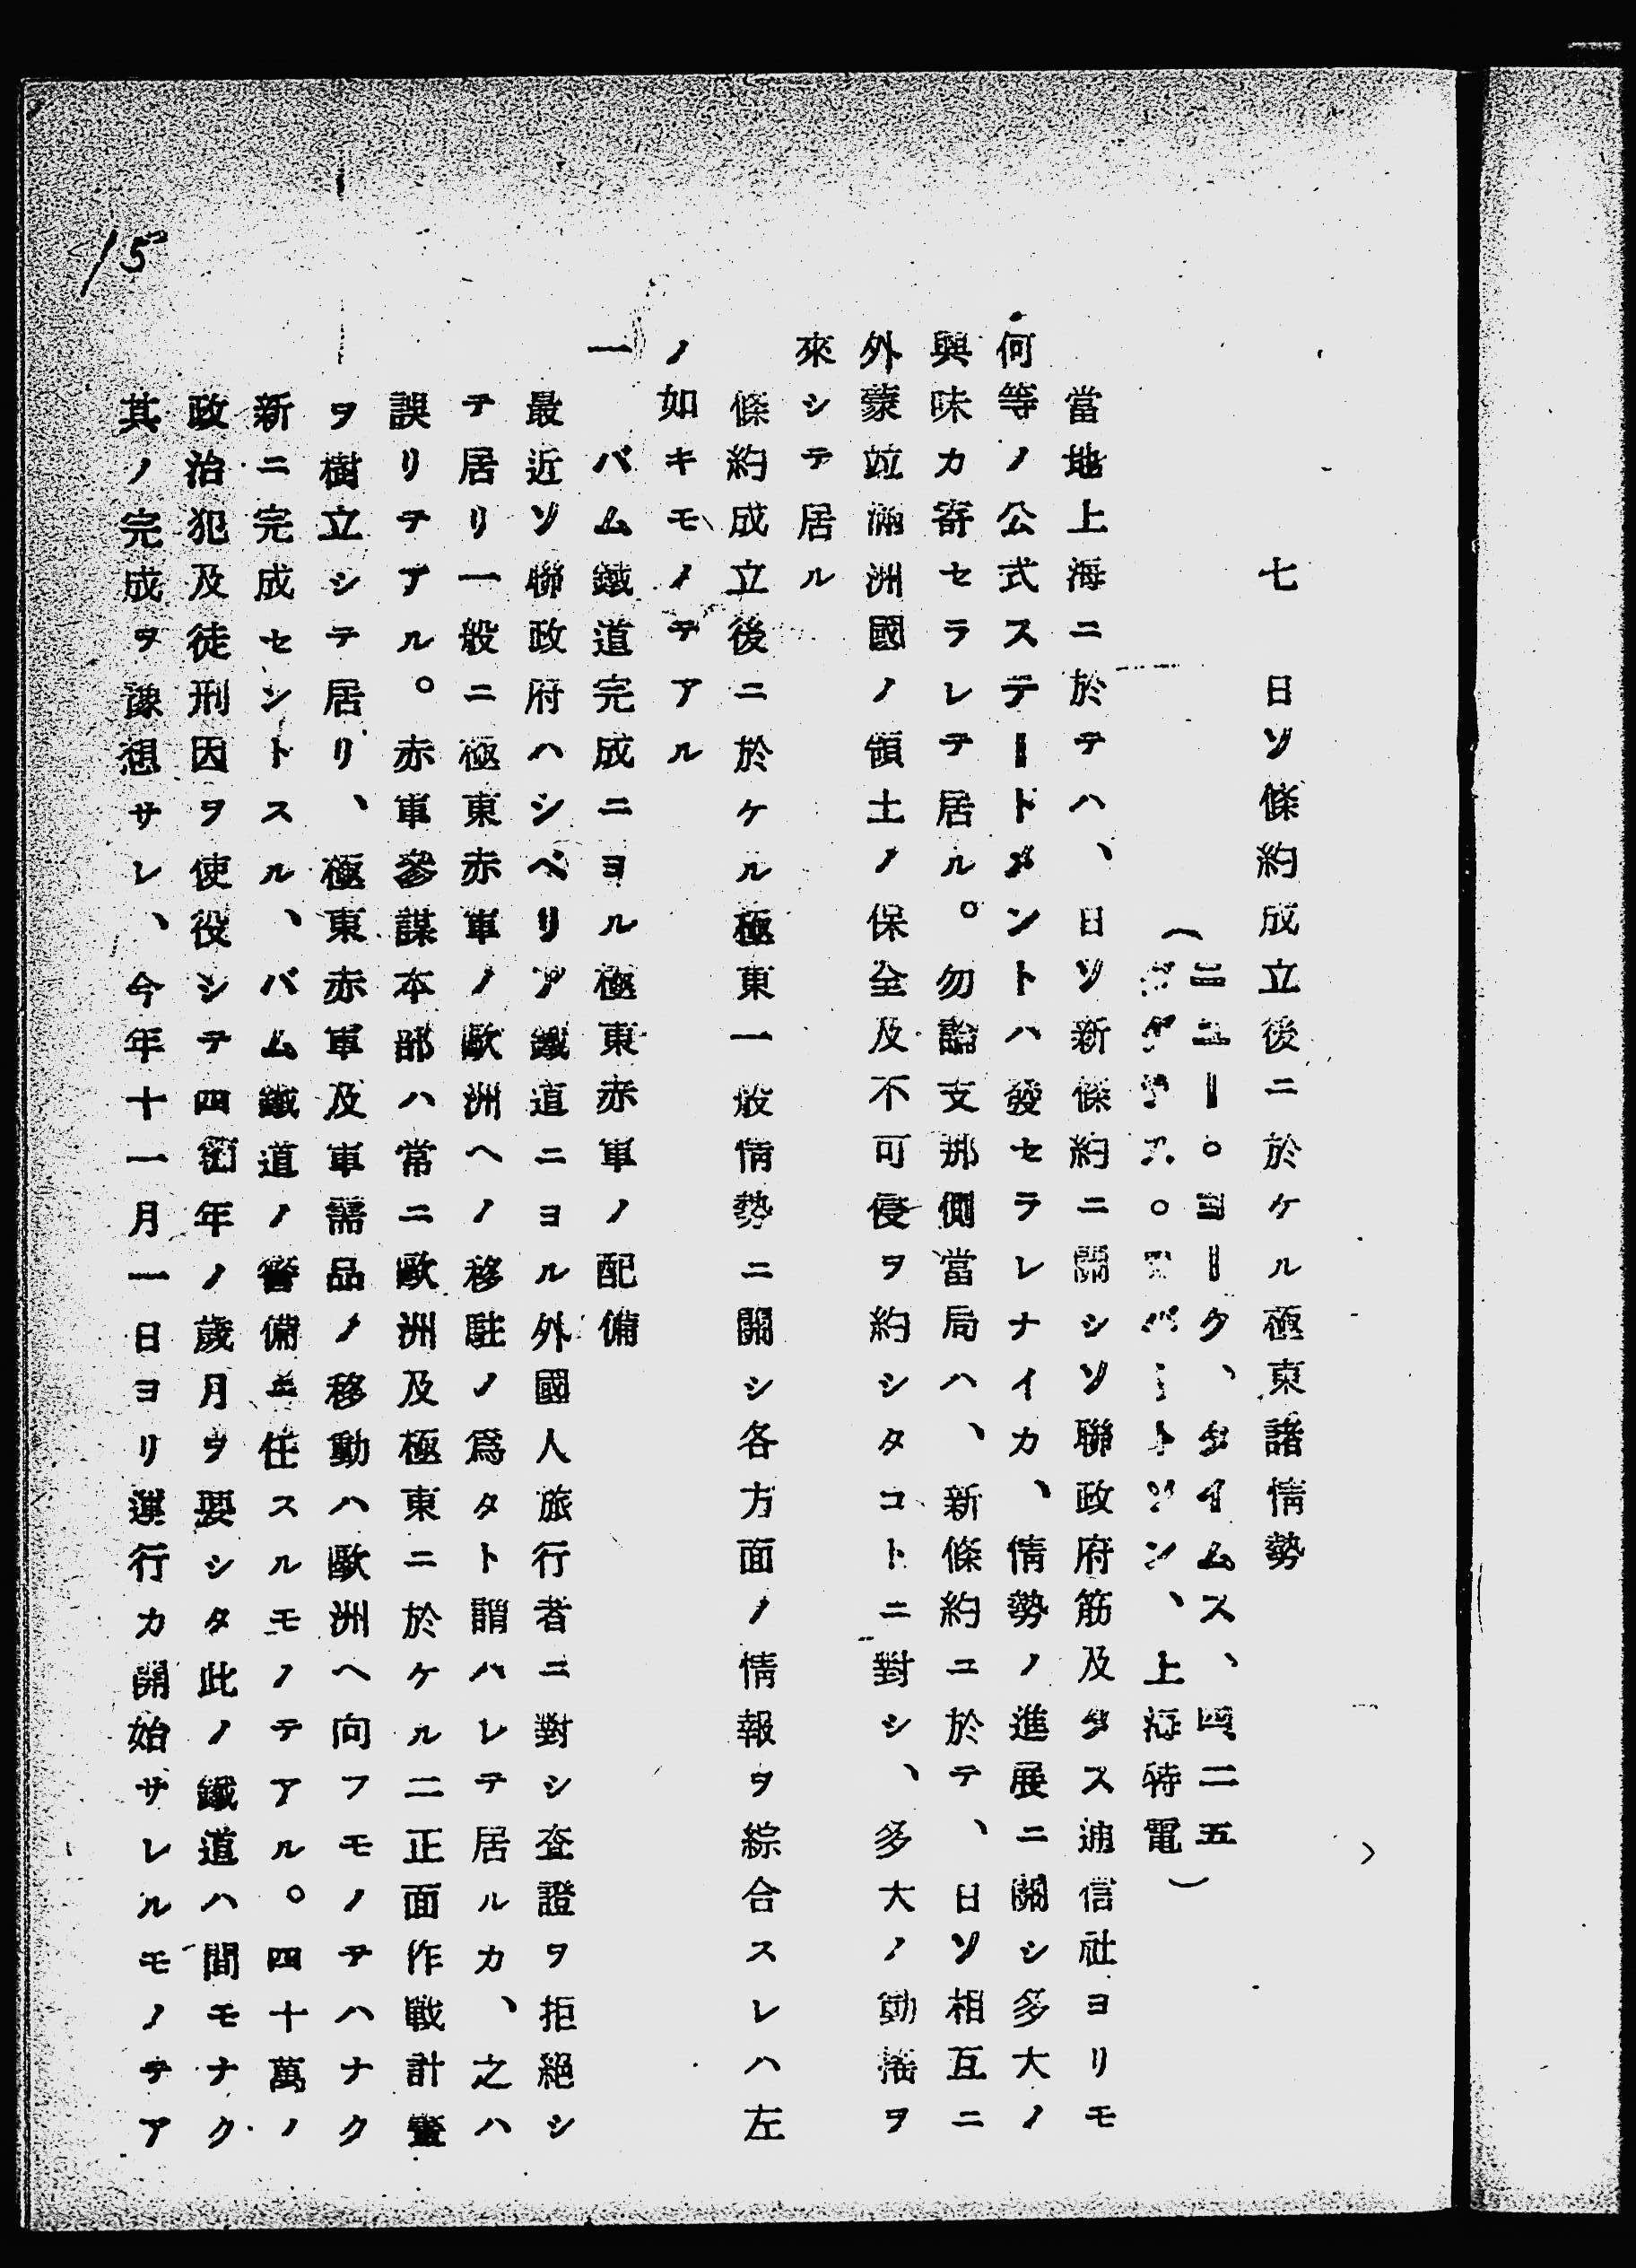 七　日ソ條約成立後ニ於ケル極東諸情勢
（ニユー。ヨーク、タイムス、四二五
ダグラス。ロバートソン、上海特電）
當地上海ニ於テハ、日ソ新條約ニ關シソ聯政府筋及タス通信社ヨリモ
何等ノ公式ステートメントハ發セラレナイカ、情勢ノ進展ニ關シ多大ノ
興味カ寄セラレテ居ル。勿論支那側當局ハ、新條約ニ於テ、日ソ相互ニ
外蒙竝滿洲國ノ領土ノ保全及不可侵ヲ約シタコトニ對シ、多大ノ動搖ヲ
來シテ居ル
條約成立後ニ於ケル極東一般情勢ニ關シ各方面ノ情報ヲ綜合スレハ左
ノ如キモノテアル
一　バム鐵道完成ニヨル極東赤軍ノ配備
最近ソ聯政府ハシベリア鐵道ニヨル外國人旅行者ニ對シ査證ヲ拒絕シ
テ居リ一般ニ極東赤軍ノ歐洲ヘノ移駐ノ爲タト謂ハレテ居ルカ、之ハ
誤リテアル。赤軍參謀本部ハ常ニ歐洲及極東ニ於ケル二正面作戰計畫
ヲ樹立シテ居リ、極東赤軍及軍需品ノ移動ハ歐洲ヘ向フモノテハナク
新ニ完成セシトスル、バム鐵道ノ警備ニ任スルモノテアル。四十萬ノ
政治犯及徒刑因ヲ使役シテ四箇年ノ歲月ヲ要シタ此ノ鐵道ハ間モナク
其ノ完成ヲ豫想サレ、今年十一月一日ヨリ運行カ開始サレルモノテア
15